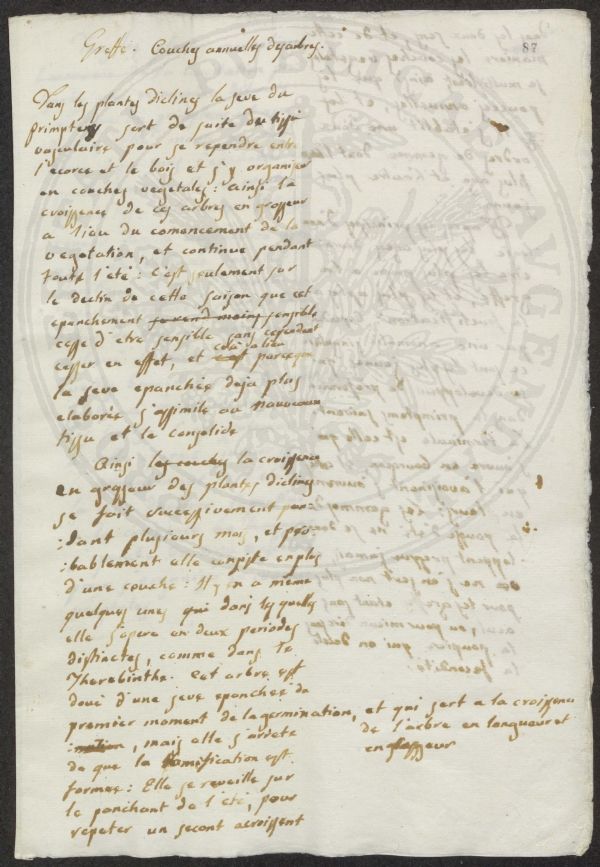 87
Greffe. Couches annuelles des arbres.
Dans les plantes diclines la seve du
printems sort de suite du tissu
vasculaire pour se rependre entre
l'ecorce et le bois et s'y organiser
en couches vegetales: ainsi la
croissence de ces arbres en grosseur
a lieu du comoncement de la
vegetation, et continue pendant
toute l'eté: C'est seulement sur
le declin de cette saison que cet
epanchement se rend moins sensible
cesse d'etre sensible sans cependant
cesser en effet, et cela a lieu parceque
la seve epanchée deja plus
elaborée s'assimile au nouveau
tissu et le consolide
Ainsi les couches la croissence
en grosseur des plantes diclines
se fait successivement pen-
:dant plusieurs mois, et pro-
:bablement elle consiste en plus
d'une couche: Il y en a même
quelques unes qui dans lesquelles
elle s'opere en deux periodes
distinctes, comme dans le
Therebinthe. Cet arbre est
doué d'une seve epanchée du
premier moment de la germination, et qui sert a la croissence
de l'arbre en longueur et
en grosseur
:nation, mais elle s'arrete
de que la ramification est
formée: Elle se reveille sur
le panchant de l'eté, pour
repeter un second acroissent